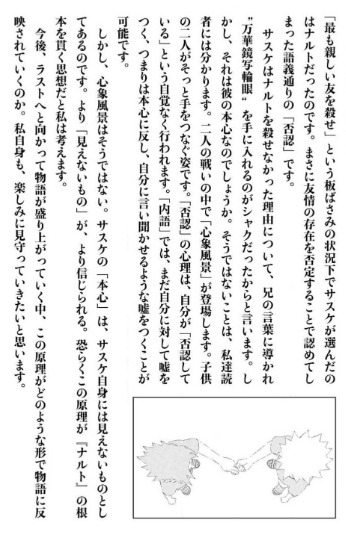 「最も親しい友を殺せ」という板ばさみの状況下でサスケが選んだの
はナルトだったのです。まさに友情の存在を否定することで認めてし
まった語義通りの「否認」です。
　サスケはナルトを殺せなかった理由について、兄の言葉に導かれ
“万華鏡写輪眼”を手に入れるのがシャクだったからと言います。し
かし、それは彼の本心なのでしょうか。そうではないことは、私達読
者には分かります。二人の戦いの中で「心象風景」が登場します。子供
の二人がそっと手をつなぐ姿です。「否認」の心理は、自分が「否認して
いる」という自覚なく行われます。「内語」では、まだ自分に対して嘘を
つく、つまりは本心に反し、自分に言い聞かせるような嘘をつくことが
可能です。
　しかし、心象風景はそうではない。サスケの「本心」は、サスケ自身には見えないものとし
てあるのです。より「見えないもの」が、より信じられる。恐らくこの原理が『ナルト』の根
本を貫く思想だと私は考えます。
　今後、ラストへと向かって物語が盛り上がっていく中、この原理がどのような形で物語に反
映されていくのか。私自身も、楽しみに見守っていきたいと思います。